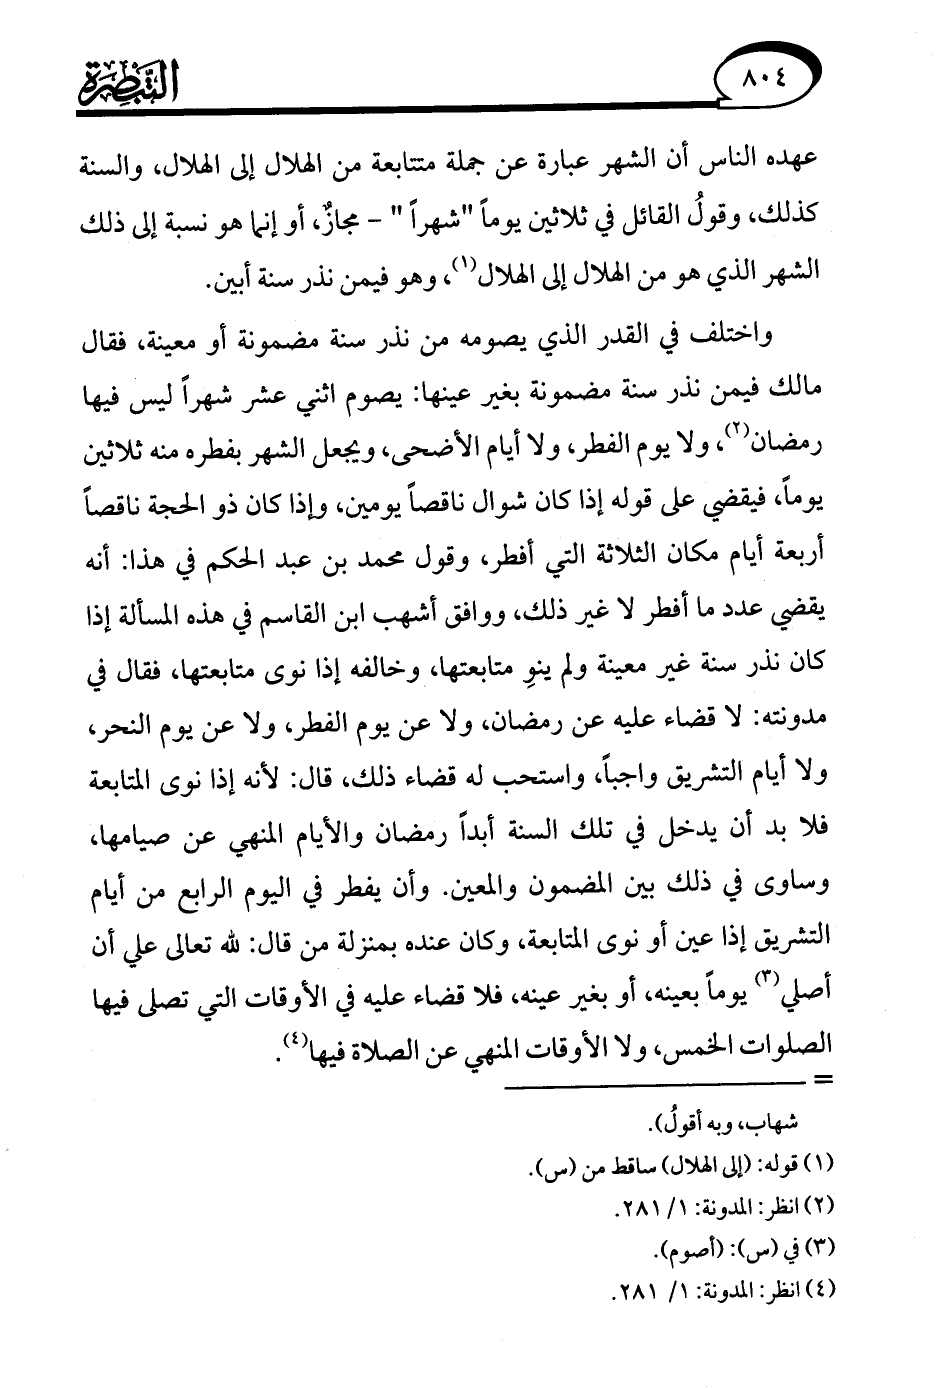 ٨٠٤
التبصرة
عهده الناس أن الشهر عبارة عن جملة متتابعة من الهلال إلى الهلال، والسنة
كذلك، وقولُ القائل في ثلاثين يوماً "شهراً " - مجازٌ، أو إنما هو نسبة إلى ذلك
الشهر الذي هو من الهلال إلى الهلال(١)، وهو فيمن نذر سنة أبين.
واختلف في القدر الذي يصومه من نذر سنة مضمونة أو معينة، فقال
مالك فيمن نذر سنة مضمونة بغير عينها: يصوم اثني عشر شهراً ليس فيها
رمضان(٢)، ولا يوم الفطر، ولا أيام الأضحى، ويجعل الشهر بفطره منه ثلاثين
يوماً، فيقضي على قوله إذا كان شوال ناقصاً يومين، وإذا كان ذو الحجة ناقصاً
أربعة أيام مكان الثلاثة التي أفطر، وقول محمد بن عبد الحكم في هذا: أنه
يقضي عدد ما أفطر لا غير ذلك، ووافق أشهب ابن القاسم في هذه المسألة إذا
كان نذر سنة غير معينة ولم ينوِ متابعتها، وخالفه إذا نوى متابعتها، فقال في
مدونته: لا قضاء عليه عن رمضان، ولا عن يوم الفطر، ولا عن يوم النحر،
ولا أيام التشريق واجباً، واستحب له قضاء ذلك، قال: لأنه إذا نوى المتابعة
فلا بد أن يدخل في تلك السنة أبداً رمضان والأيام المنهي عن صيامها،
وساوى في ذلك بين المضمون والمعين. وأن يفطر في اليوم الرابع من أيام
التشريق إذا عين أو نوى المتابعة، وكان عنده بمنزلة من قال: لله تعالى علي أن
أصلي(٣) يوماً بعينه، أو بغير عينه، فلا قضاء عليه في الأوقات التي تصلى فيها
الصلوات الخمس، ولا الأوقات المنهي عن الصلاة فيها(٤).
=
شهاب، وبه أقولُ).
(١) قوله: (إلى الهلال) ساقط من (س).
(٢) انظر: المدونة: ١/ ٢٨١.
(٣) في (س): (أصوم).
(٤) انظر: المدونة: ١/ ٢٨١.